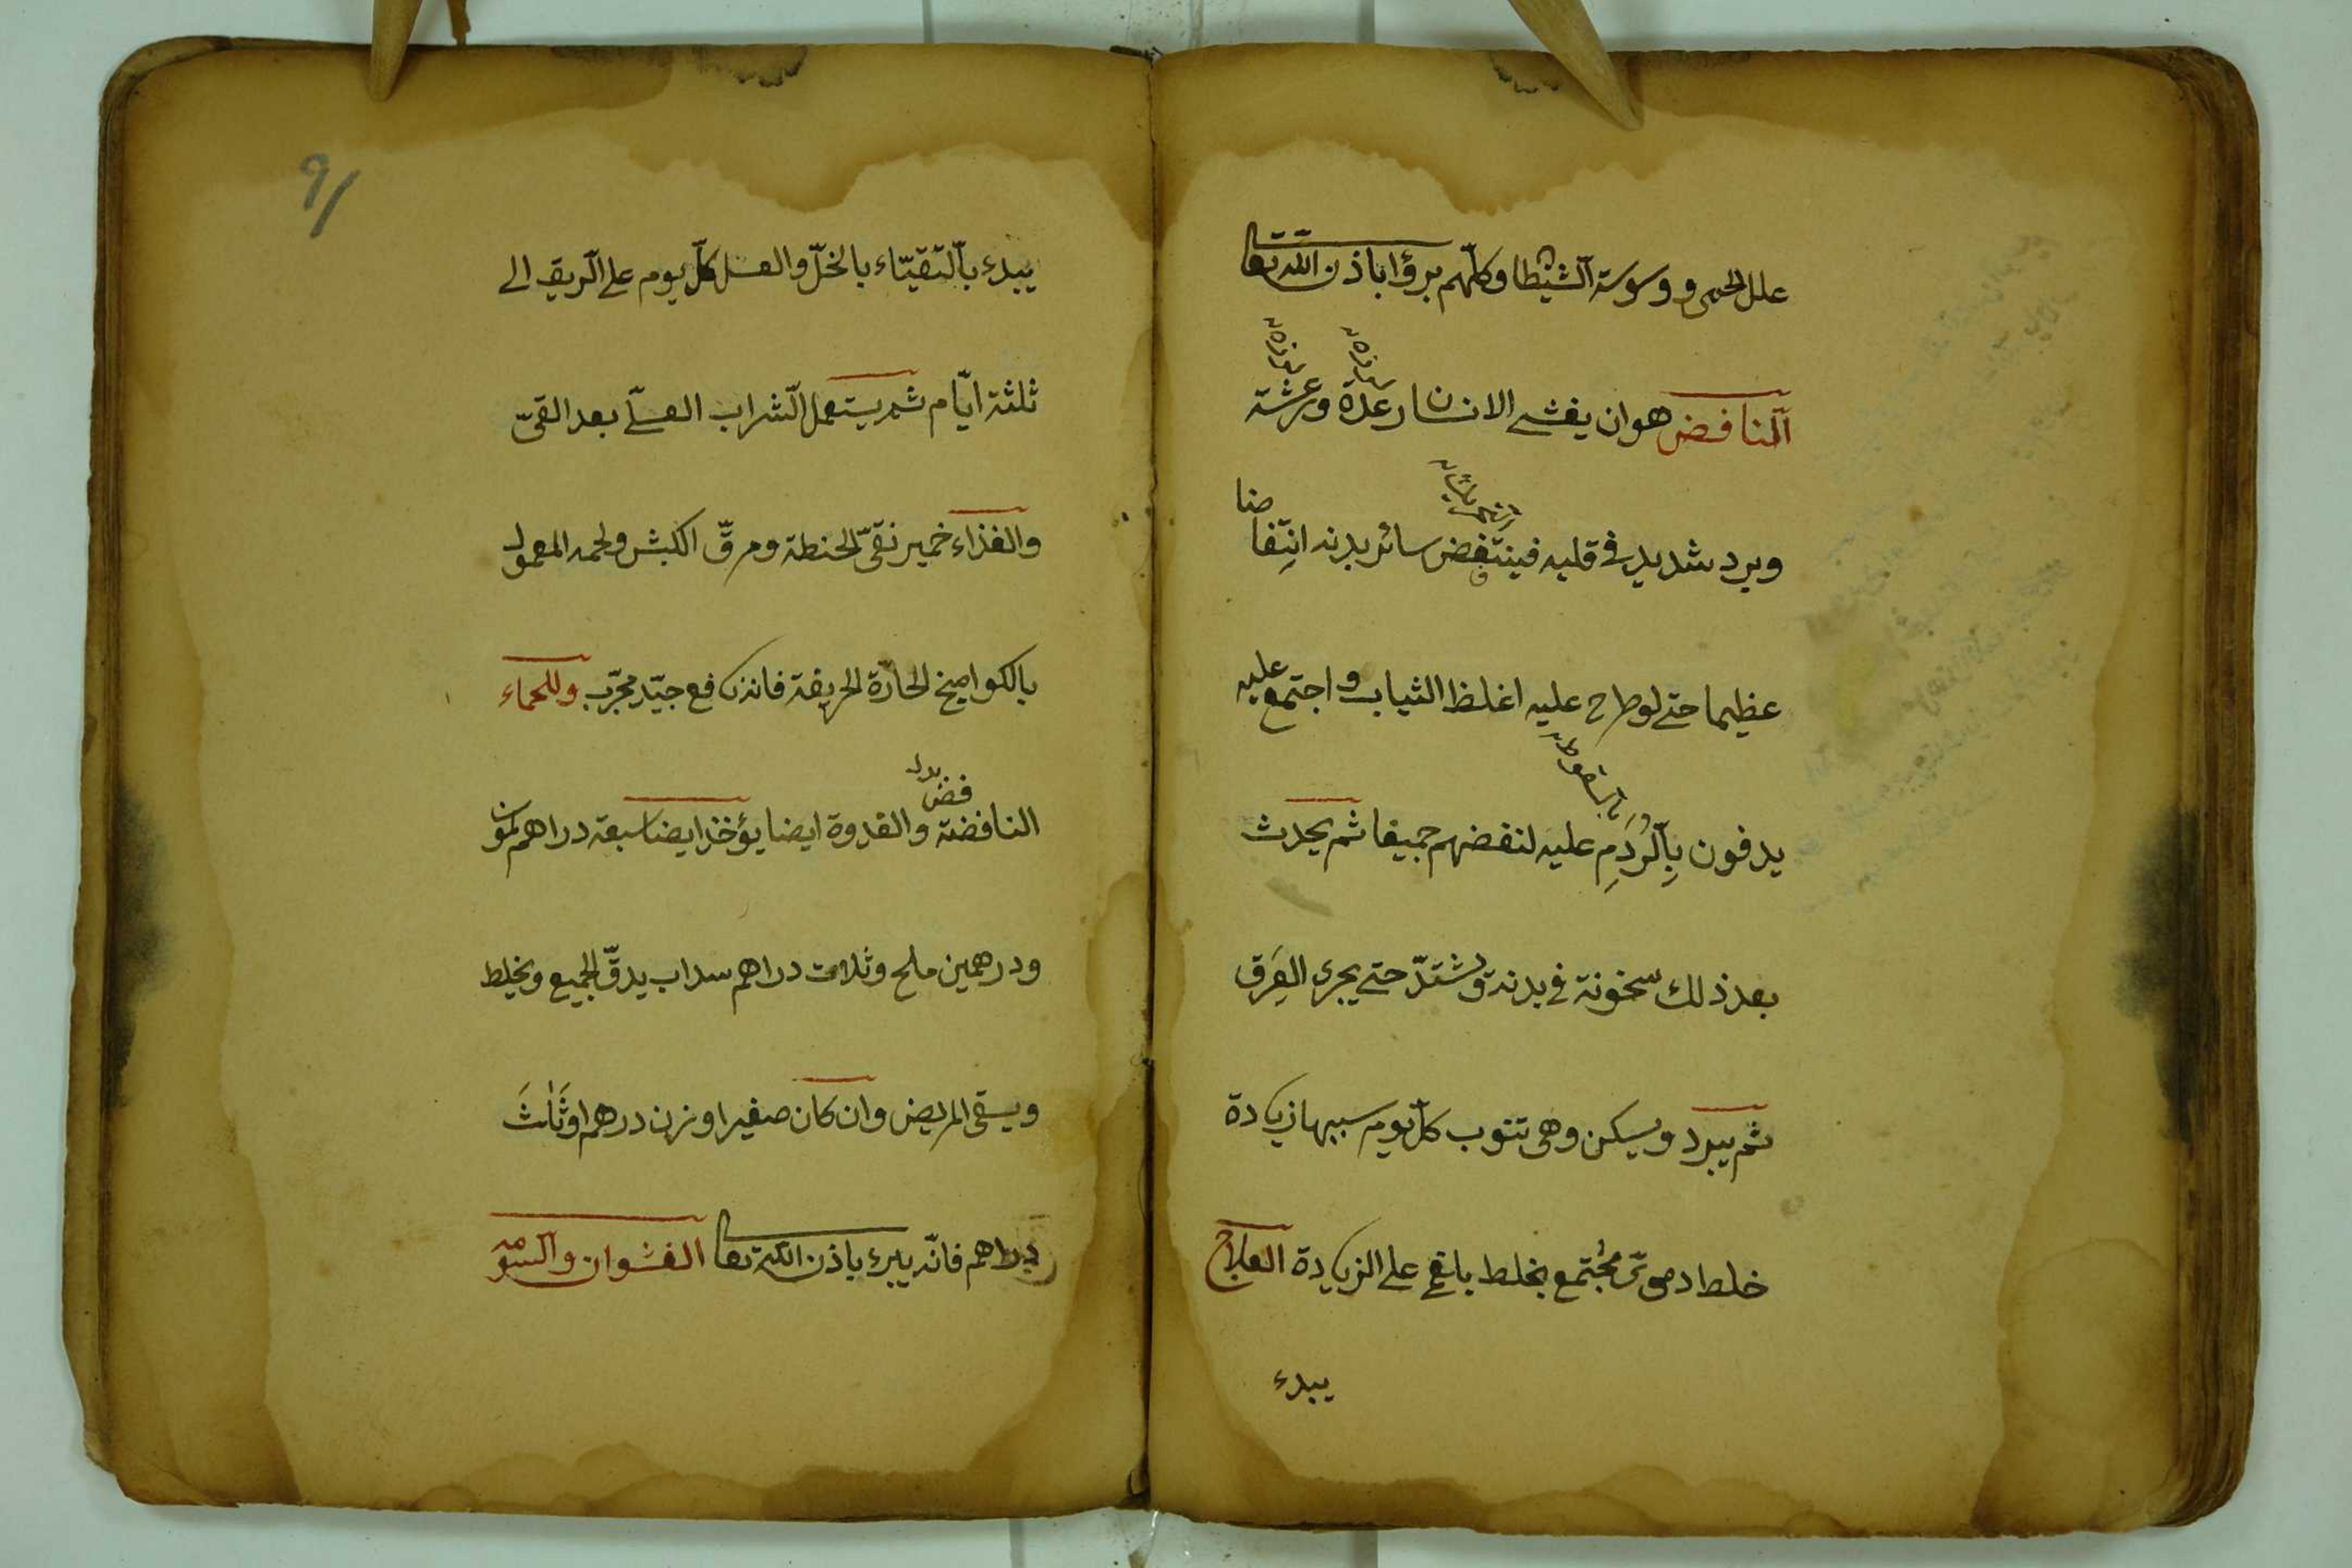 علل الحمى ووسوسة الشيطان وكلّهم برؤا باذن اللّه تعا
النافض هو ان يغشى الانسان رعدة ورعشة
وبرد شديد فى قلبه فينتفض سائر بدنه انتفاضا
عظيما حتى لو طرح عليه اغلظ الثياب واجتمع عليه
يدفون بالرُدَمِ عليه لنفضهم جميعا ثم يحدث
بعد ذلك سخونة فى بدنه وتشتدّ حتى يجرى العَرق
ثم يبرد ويسكن وهى تنوب كلّ يوم سببها زيادة
خلط دموىّ مجُتمع بخلط بلغم على الزيادة العلاج
يبدء
٩١
يبدء بالتقيّاء بالخلّ والعسل كلّ يوم على الريق الى
ثلثة ايّام ثم يستعمل الشراب العسلى بعد القىّ
والغذاء خمير نقىّ الحنطة ومرقّ الكبش ولحمه المعمول
بالكواميخ الحارّة الحريفة فانه نافع جيّد مجرّب وللحماء
النافضة والغدوة ايضا يؤخذ ايضا سبعة دراهم كمون
ودرهمين ملح وثلاث دراهم سداب يدقّ الجميع ويخلط
ويسقى المريض وان كان صغيرا وزن درهم او ثَلٰثَ
دراهم فانّه يبرء باذن اللّه تعا الغشوان والسومه